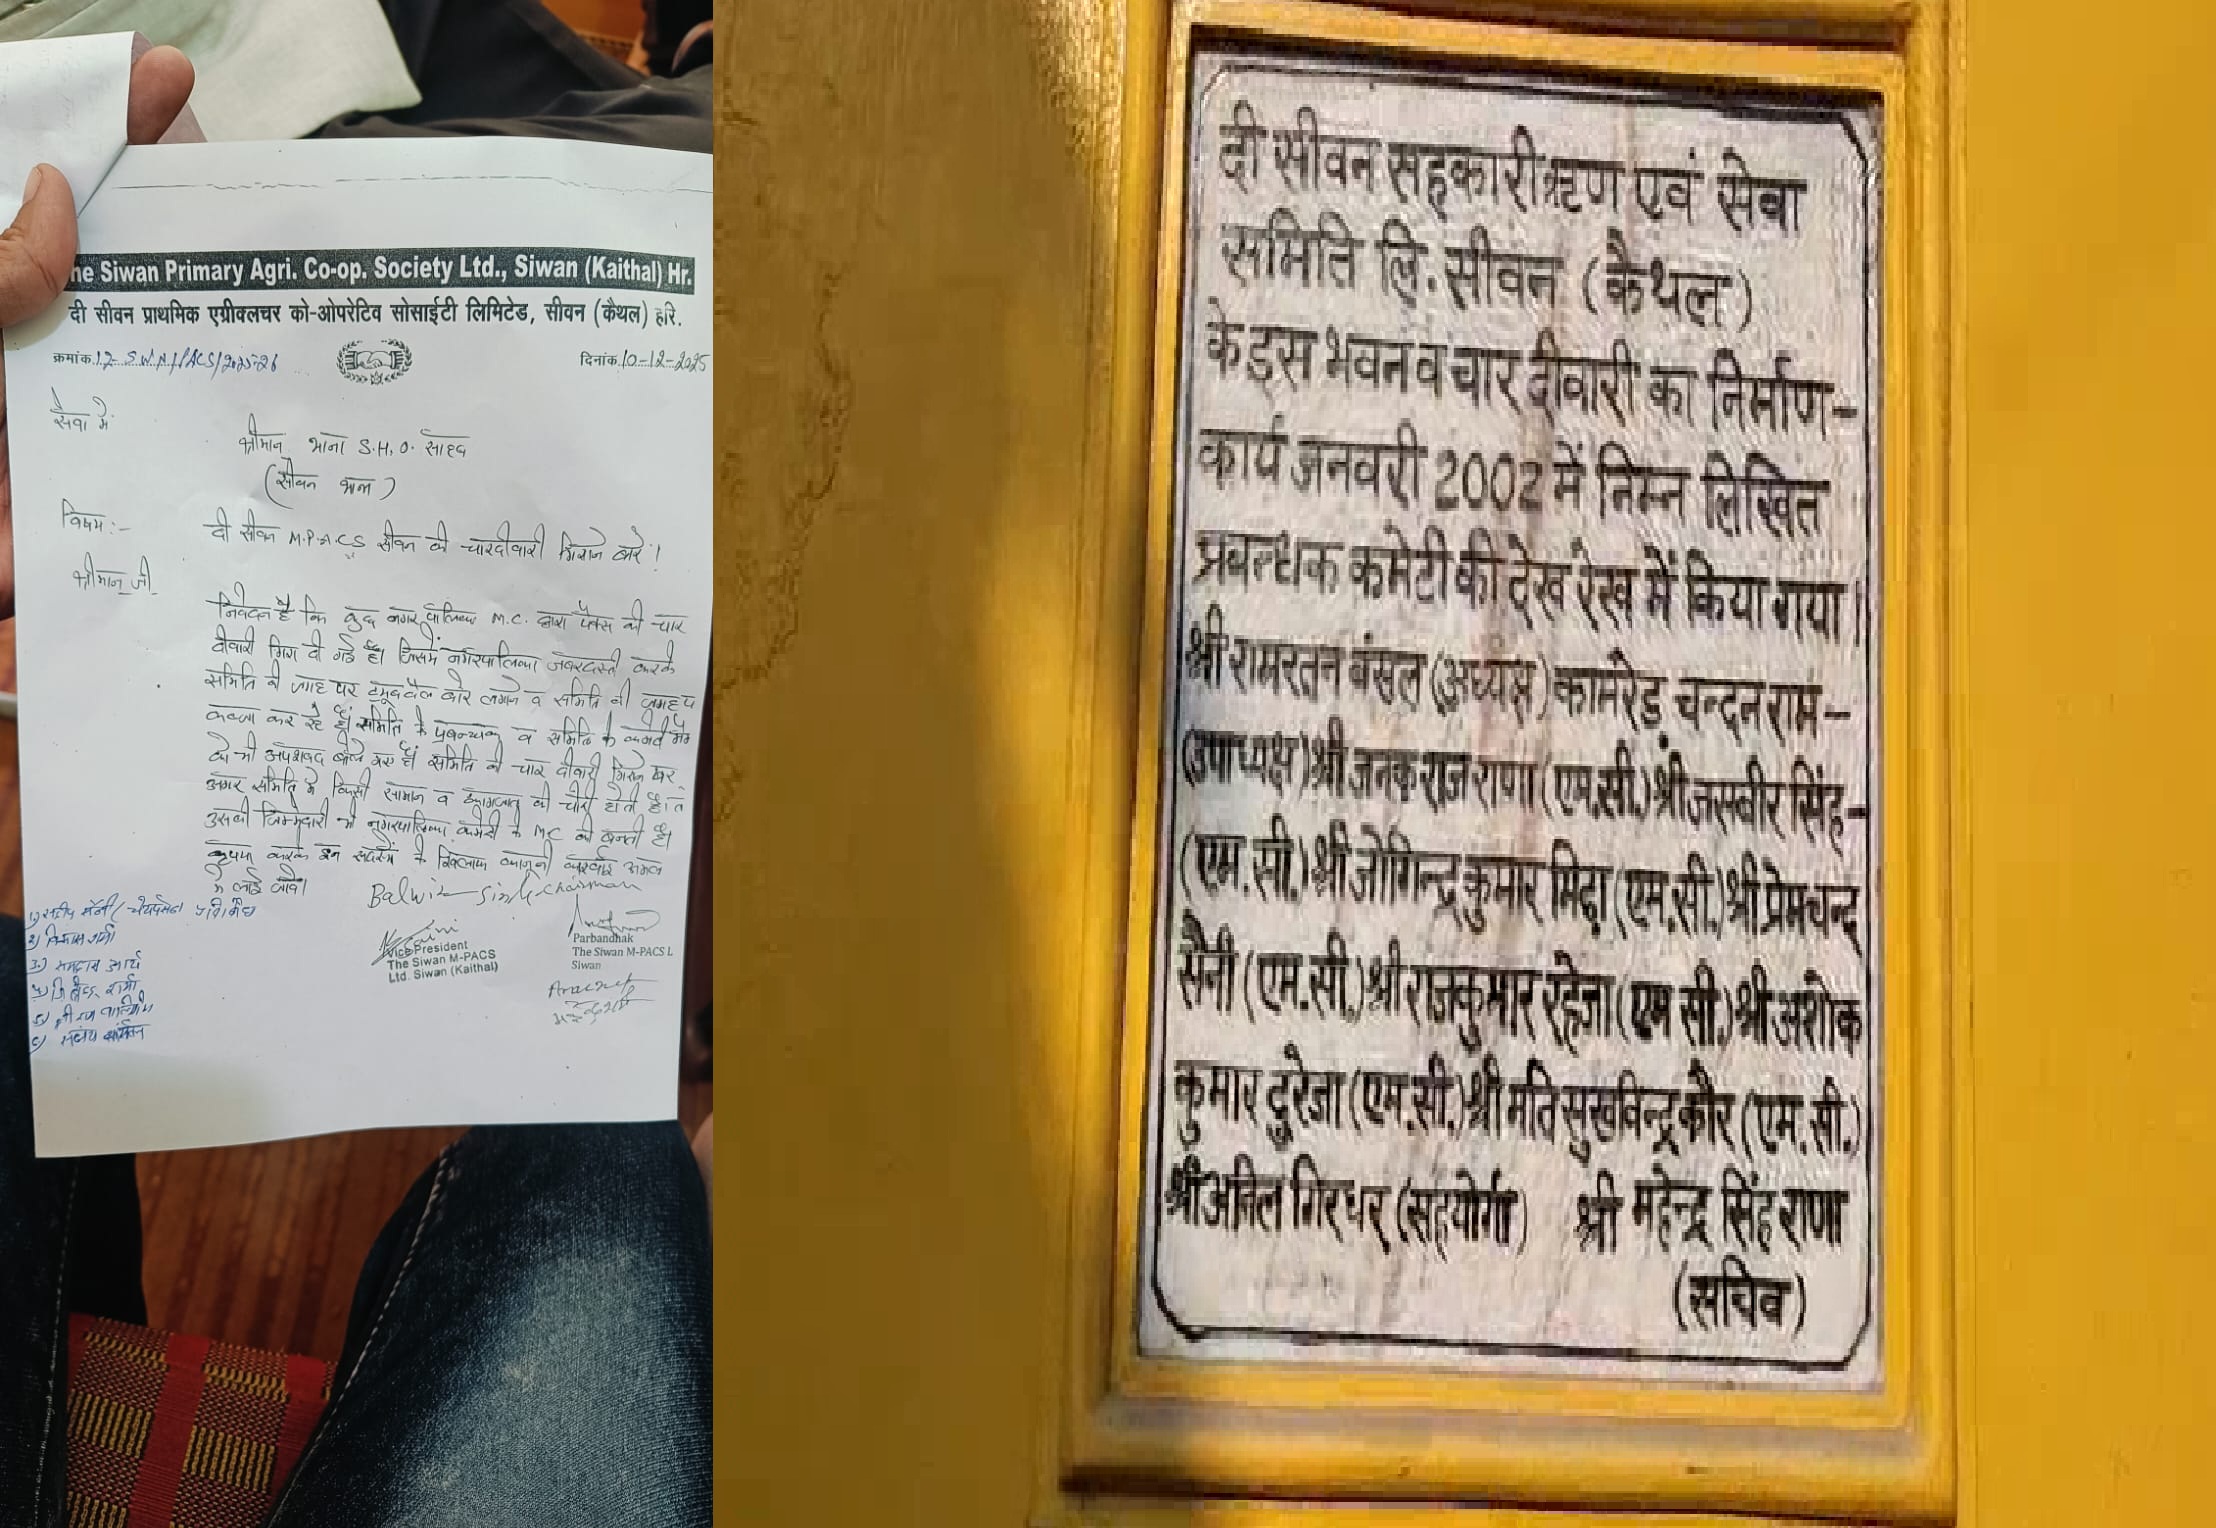 The Siwan Primary Agri. Co-op. Society Ltd., Siwan (Kaithal) Hr.
दी सीवन प्राथमिक एग्रीक्लचर को-ओपरेटिव सोसाईटी लिमिटेड, सीवन (कैथल) हरि.
क्रमांक 12 SWN/PACS/2025-26 दिनांक 10-12-2025
सेवा में
श्रीमान थाना S.H.O. साहब
(सीवन थाना)
विषय:- दी सीवन M.P.A.C.S सीवन की चारदीवारी गिराने बारे।
श्रीमान जी
निवेदन है कि कुछ नगर पालिका M.C. द्वारा पैक्स की चार
दीवारी गिरा दी गई है। जिसमें नगरपालिका जबरदस्ती करके
समिति की जगह पर ट्यूबवैल बोर लगाने व समिति की जगह प
कब्जा कर रहे हैं। समिति के प्रबन्धक व समिति के कमेटी
को भी अपशब्द बोले गए हैं समिति की चार दीवारी गिराने पर
अगर समिति में किसी सामान व की चोरी होती है। त
उसकी जिम्मेदारी भी नगरपालिका कमेटी के MC की बनती है।
कृपया करके इन सदस्यों के खिलाफ कानूनी कारवाई अमल
में लाई जावे।
Balwin Singh Chairman
1)
2) विकास शर्मा
3) रामदास आर्य
4) शर्मा
5)
6)
Vice President
The Siwan M-PACS
Ltd. Siwan (Kaithal)
Parbandhak
The Siwan M-PACS L
Siwan
दी सीवन सहकारी ऋण एवं सेवा
समिति लि. सीवन (कैथल)
के इस भवन व चार दीवारी का निर्माण-
कार्य जनवरी 2002 में निम्न लिखित
प्रबन्धक कमेटी की देख रेख में किया गया।
श्री रामरतन बंसल (अध्यक्ष) कामरेड़ चन्दन राम-
(उपाध्यक्ष) श्री जनक राज राणा (एम.सी.) श्री जस्वीर सिंह-
(एम.सी.) श्री जोगिन्द्र कुमार मिढ़ा (एम.सी.) श्री प्रेमचन्द
सैनी (एम.सी.) श्री राजकुमार रहेजा (एम सी.) श्री अशोक
कुमार दुरेजा (एम.सी.) श्री मति सुखविन्द्र कौर (एम.सी.)
श्री अनिल गिरधर (सहयोगी) श्री महेन्द्र सिंह राणा
(सचिव)